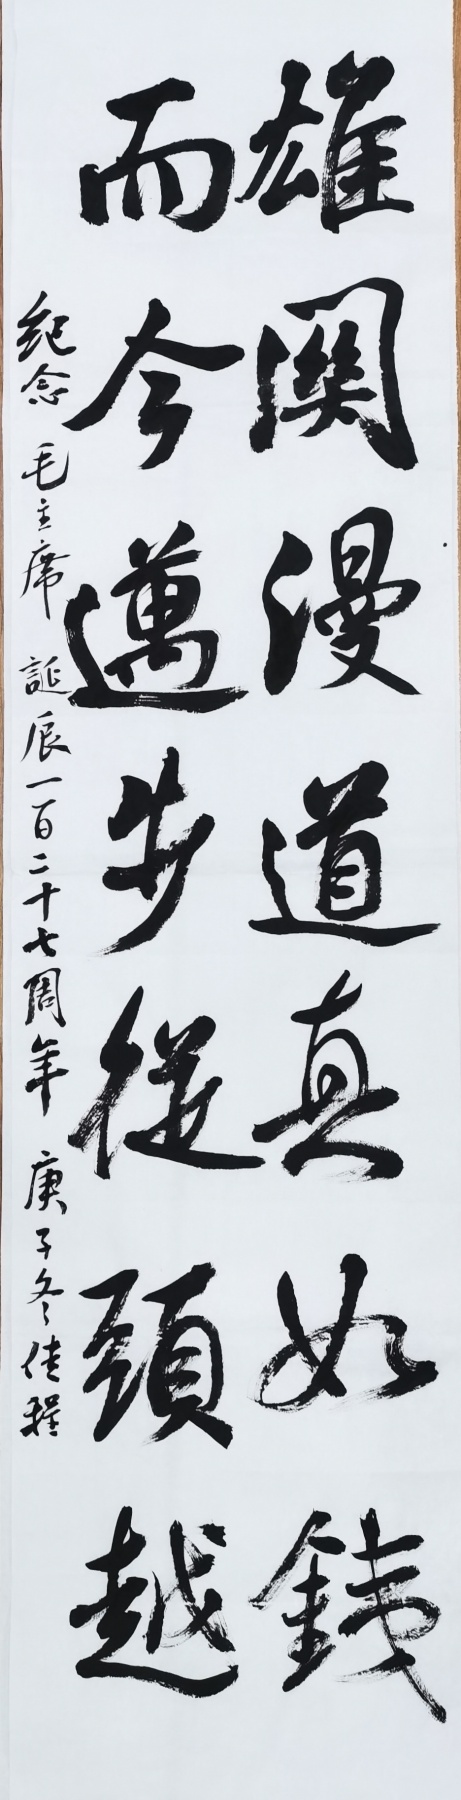 雄關漫道真如鐵
而今邁步從頭越
紀念毛主席誕辰一百二十七周年 庚子冬佳程